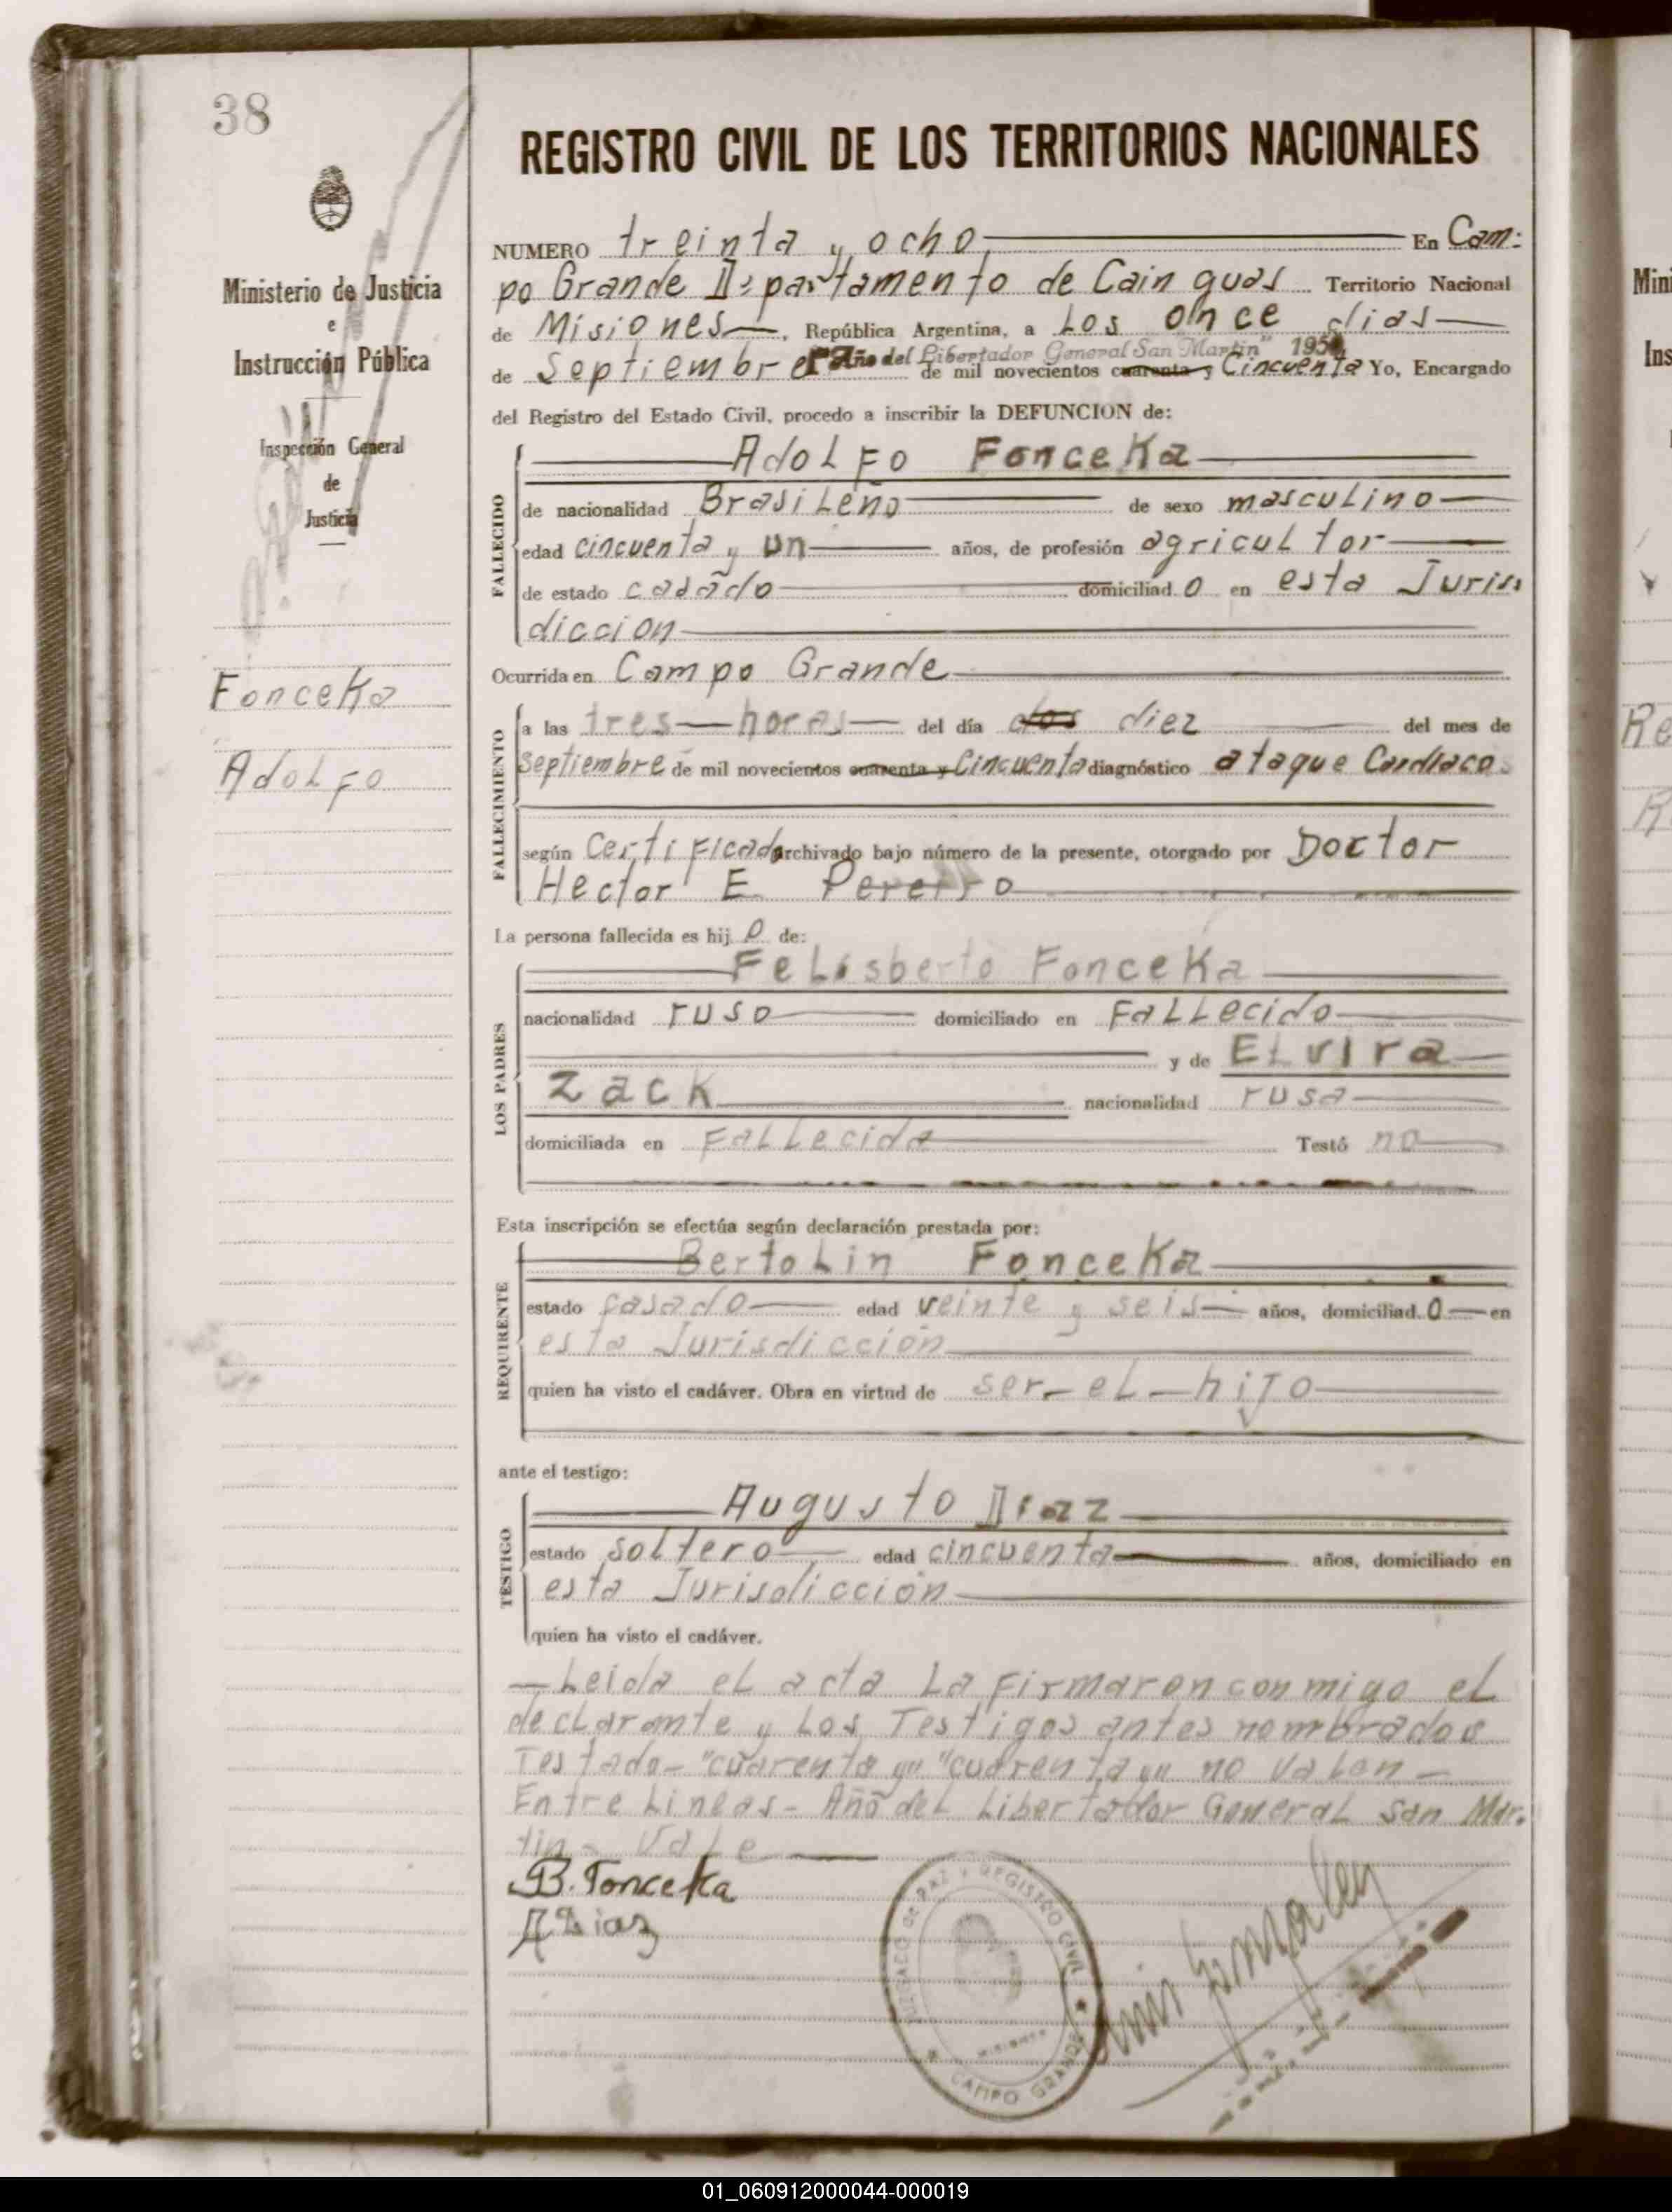 38
Ministerio de Justicia
e
Instrucción Pública
Inspección General
de
Justicia
Fonceka
Adolfo
REGISTRO CIVIL DE LOS TERRITORIOS NACIONALES
NUMERO treinta y ocho En Cam:
po Grande Departamento de Cainguas Territorio Nacional
de Misiones, República Argentina, a Los once dias
"Año del Libertador General San Martin" 1950
de Septiembre de mil novecientos cuarenta y Cincuenta Yo, Encargado
del Registro del Estado Civil, procedo a inscribir la DEFUNCION de:
FALLECIDO
Adolfo Fonceka
de nacionalidad Brasileño de sexo masculino
edad cincuenta y un años, de profesión agricultor
de estado casado domiciliad o en esta Juris
diccion
Ocurrida en Campo Grande
FALLECIMIENTO
a las tres horas del día dos diez del mes de
Septiembre de mil novecientos cuarenta y Cincuenta diagnóstico ataque Cardiaco
según Certificado archivado bajo número de la presente, otorgado por Doctor
Hector E.
La persona fallecida es hij o de:
LOS PADRES
Felisberto Fonceka
nacionalidad ruso domiciliado en Fallecido
y de Elvira
Zack nacionalidad rusa
domiciliada en Fallecida Testó no
Esta inscripción se efectúa según declaración prestada por:
REQUIRENTE
Bertolin Fonceka
estado casado edad veinte y seis años, domiciliad o en
esta Jurisdicción
quien ha visto el cadáver. Obra en virtud de ser el hijo
ante el testigo:
TESTIGO
Augusto Diaz
estado soltero edad cincuenta años, domiciliado en
esta Jurisdicción
quien ha visto el cadáver.
Leida el acta la firmaron conmigo el
declarante y los Testigos antes nombrados
Testado - "cuarenta y" "cuarenta y" no valen -
Entre Lineas - Año del Libertador General San Mar-
tin - Vale
B. Fonceka
A Diaz
JUZGADO DE PAZ Y REGISTRO CIVIL
MISIONES
CAMPO GRANDE
Luis Gonzalez
Mini
Ins
Re
R
01_060912000044-000019